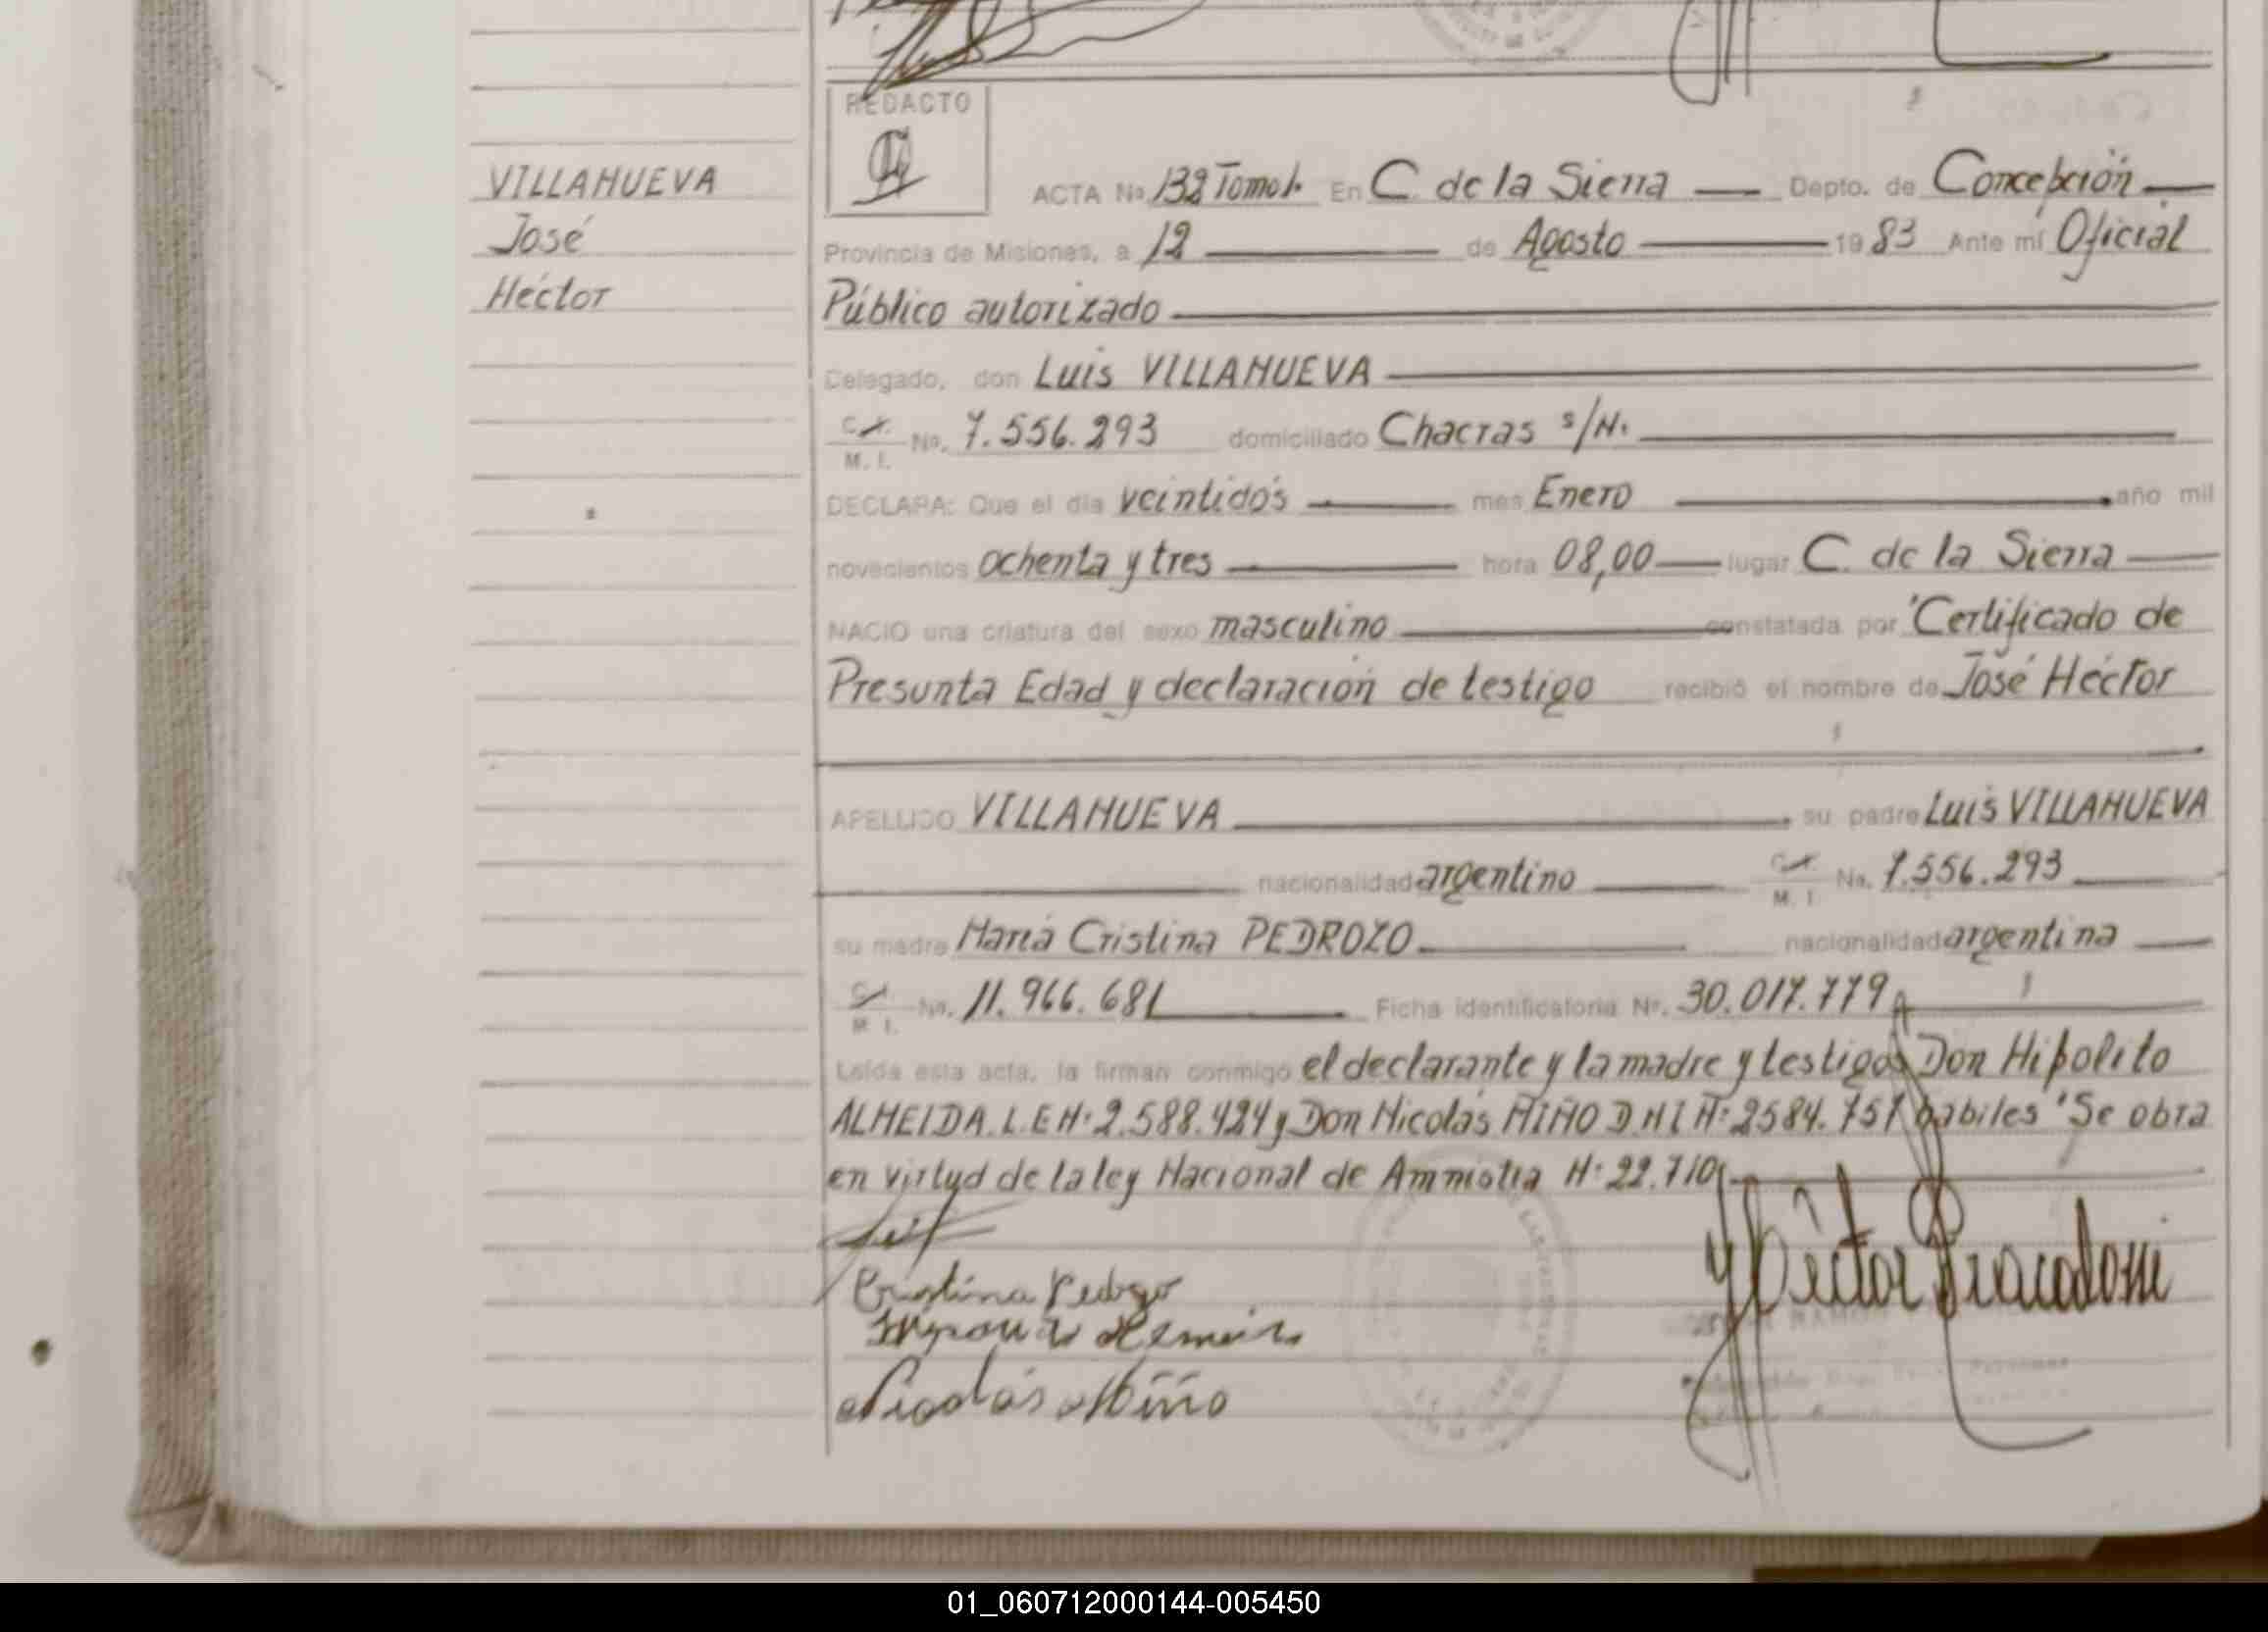 REDACTO
VILLANUEVA
José
Héctor
ACTA No 132 Tomo 1. En C. de la Sierra Depto. de Concepción
Provincia de Misiones, a 12 de Agosto 1983 Ante mí Oficial
Público autorizado
Delegado, don Luis VILLANUEVA
C.I. M.I. No. 7.556.293 domiciliado Chacras s/N.
DECLARA: Que el día veintidós mes Enero año mil
novecientos ochenta y tres hora 08,00 lugar C. de la Sierra
NACIO una criatura del sexo masculino constatada por "Certificado de
Presunta Edad y declaración de testigo recibió el nombre de José Héctor
APELLIDO VILLANUEVA su padre Luis VILLANUEVA
nacionalidad argentino C.I. M.I. No. 7.556.293
su madre María Cristina PEDROZO nacionalidad argentina
C.I. M.I. No. 11.966.681 Ficha identificatoria Nº. 30.017.779
Leída esta acta, la firman conmigo el declarante y la madre y testigos Don Hipolito
ALMEIDA L.E N: 2.588.424 y Don Nicolás MIÑO D.N.I N: 2584.757 habiles "Se obra
en virtud de la ley Nacional de Amnistia N: 22.710
Cristina Pedrozo
Nicolás Miño
01_060712000144-005450